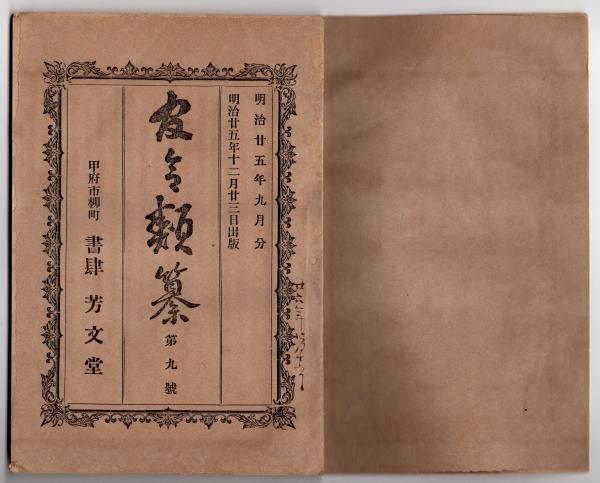 廿六年
明治廿五年九月分
明治廿五年十二月廿三日出版
官令類纂 第九號
甲府市柳町 書肆 芳文堂